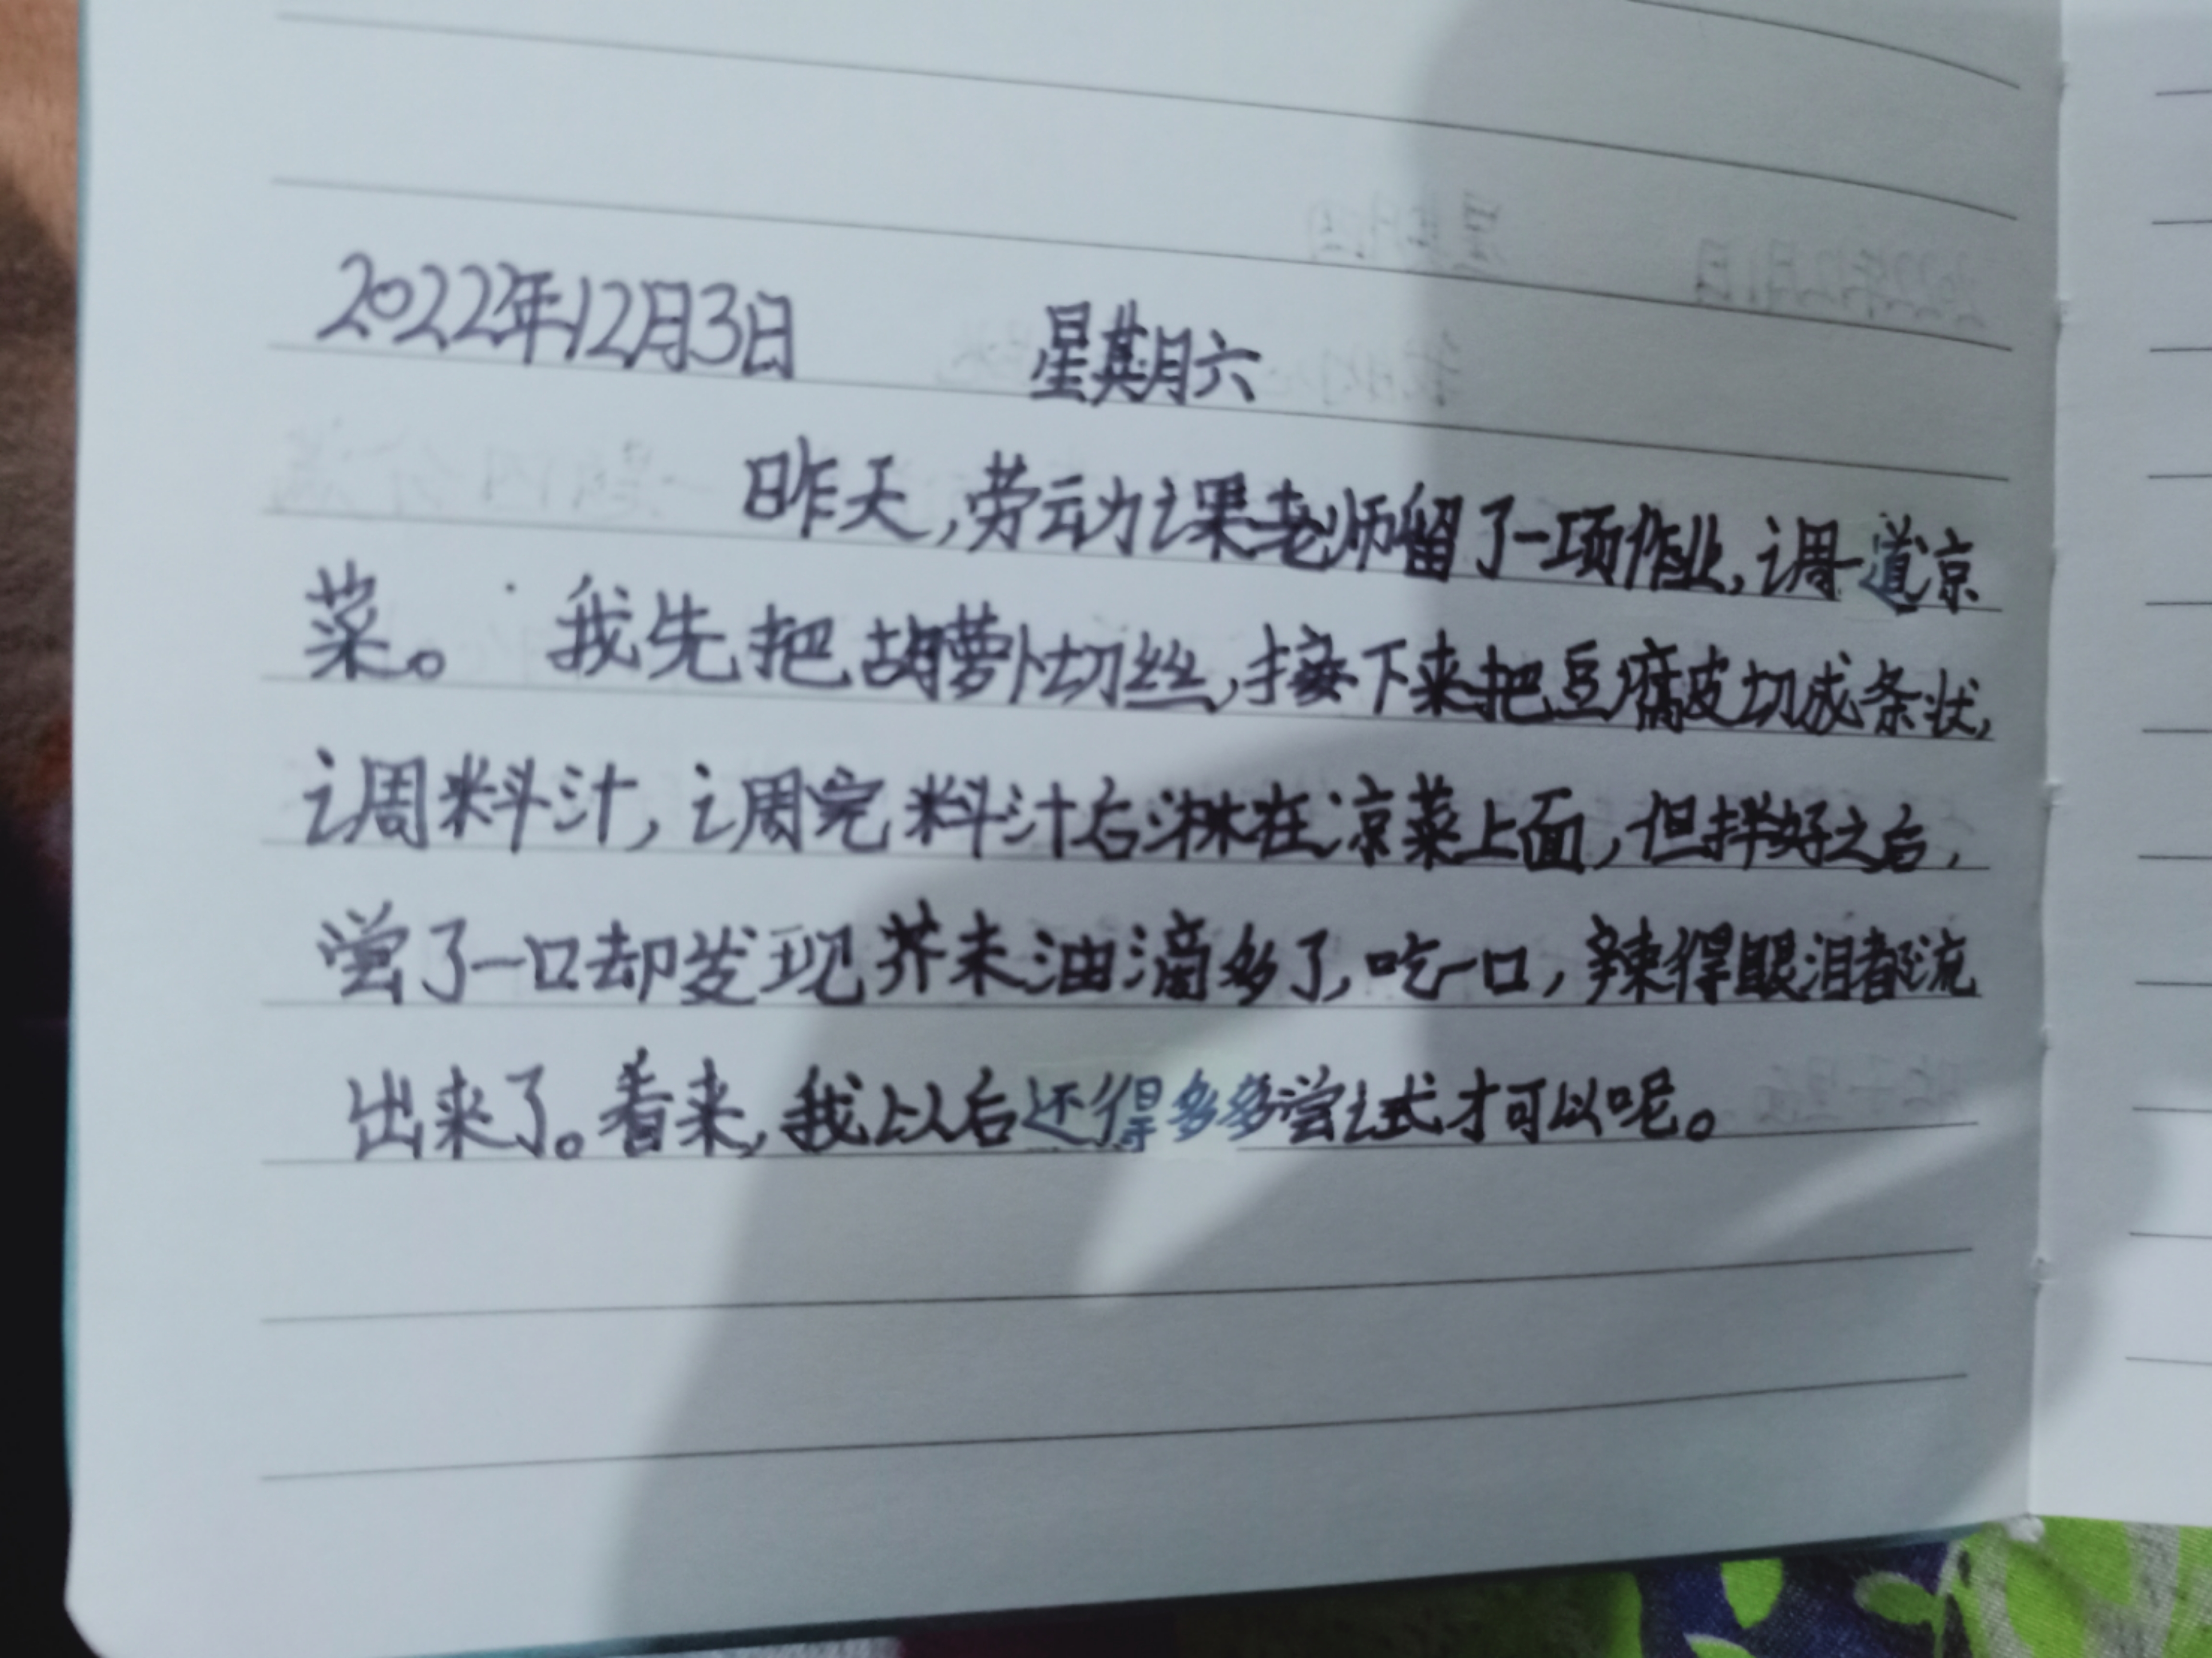 2022年12月3日 星期六
昨天,劳动课老师留了一项作业,调一道凉
菜。 我先把胡萝卜切丝,接下来把豆腐皮切成条状,
调料汁,调完料汁后淋在凉菜上面,但拌好之后,
尝了一口却发现芥末油滴多了,吃一口,辣得眼泪都流
出来了。看来,我以后还得多多尝试才可以呢。